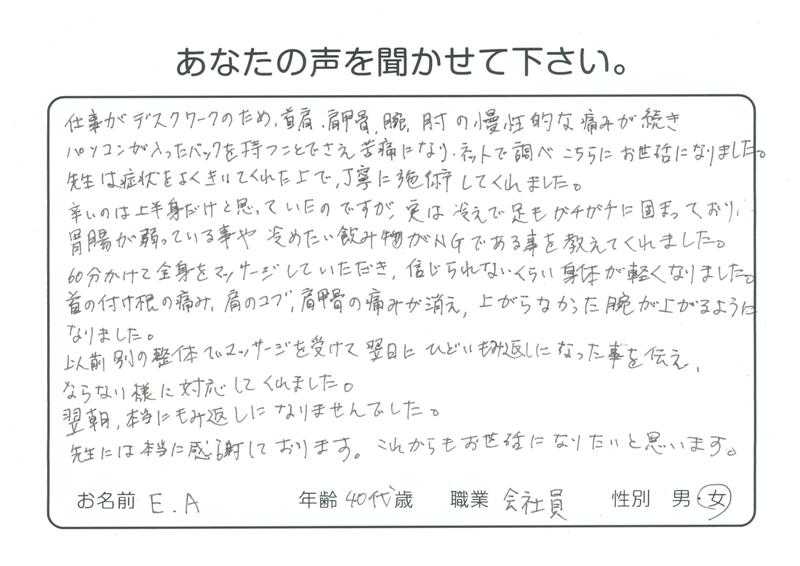 あなたの声を聞かせて下さい。
仕事がデスクワークのため、首肩、肩甲骨、腕、肘の慢性的な痛みが続き
パソコンが入ったバックを持つことでさえ苦痛になり、ネットで調べこちらにお世話になりました。
先生は症状をよくきいてくれた上で、丁寧に施術してくれました。
辛いのは上半身だけと思っていたのですが、実は冷えで足もガチガチに固まっており、
胃腸が弱っている事や冷めたい飲み物がNGである事を教えてくれました。
60分かけて全身をマッサージしていただき、信じられないくらい身体が軽くなりました。
首の付け根の痛み、肩のコブ、肩甲骨の痛みが消え、上がらなかった腕が上がるように
なりました。
以前別の整体でマッサージを受けて翌日にひどいもみ返しになった事を伝え、
ならない様に対応してくれました。
翌朝、本当にもみ返しになりませんでした。
先生には本当に感謝しております。これからもお世話になりたいと思います。
お名前 E.A 年齢 40代歳 職業 会社員 性別 男・女